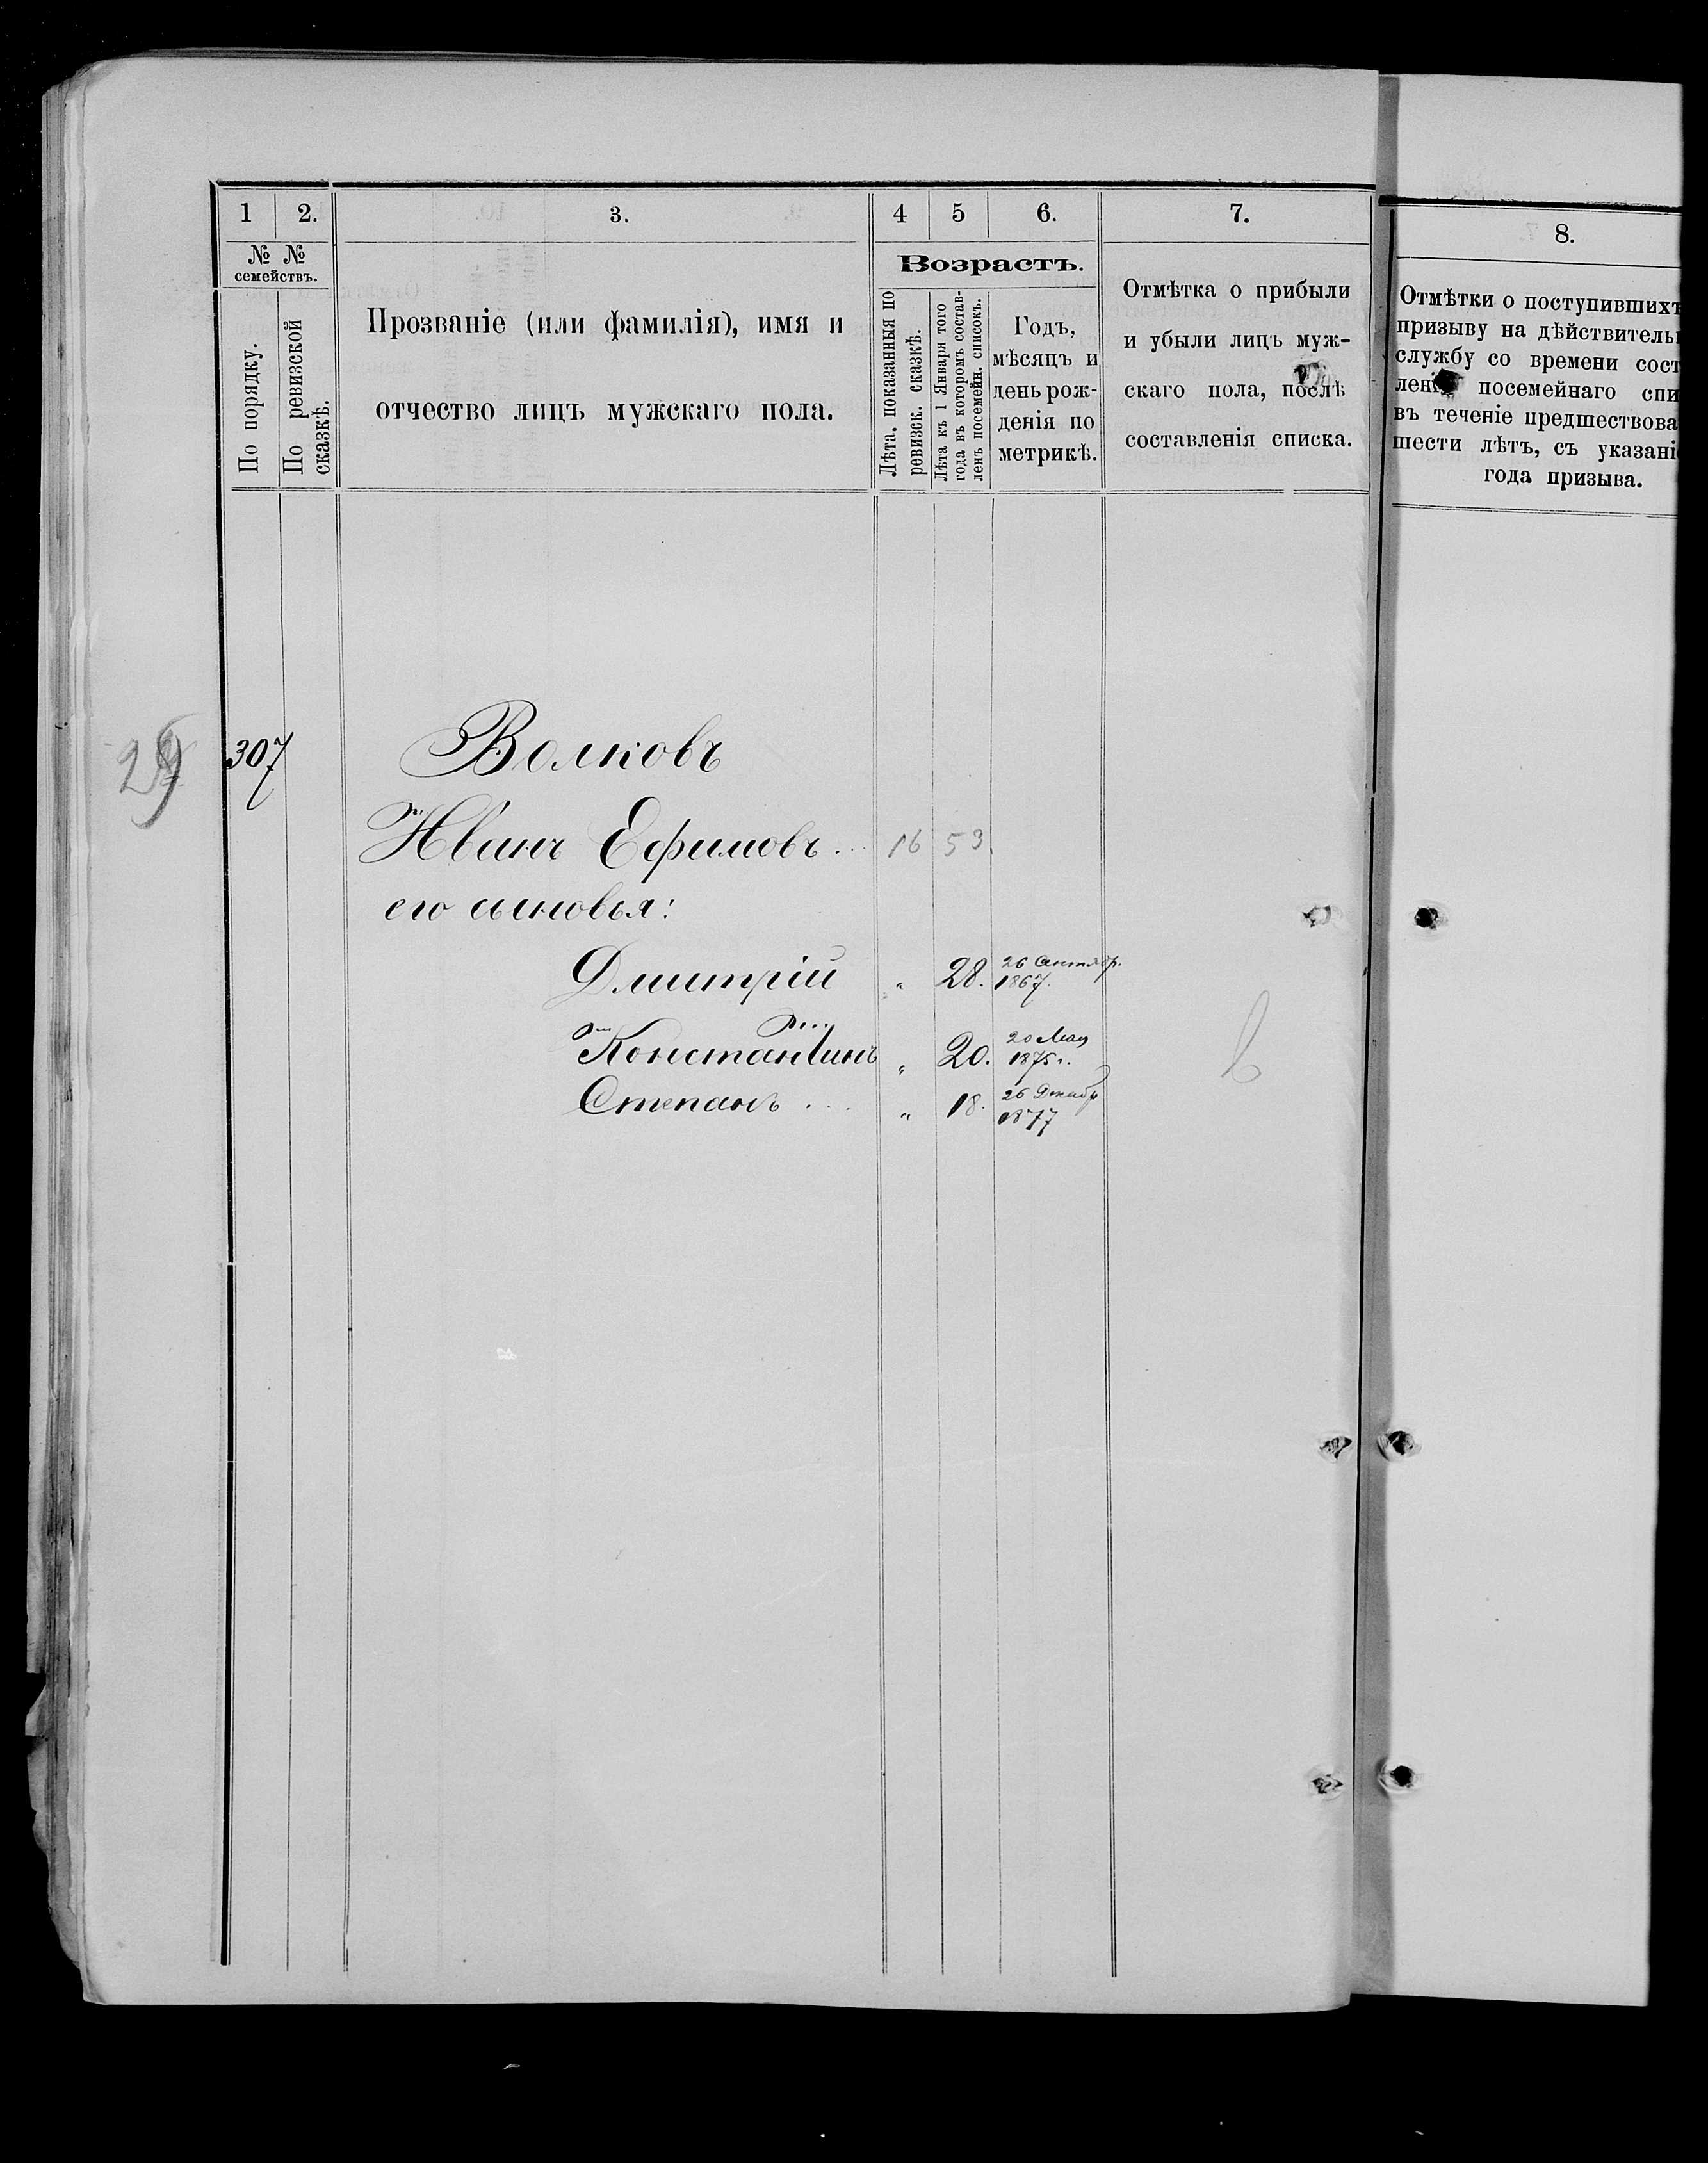 1 2. 3. 4 5 6. 7. 8.
№ № семействъ.
По порядку.
По ревизской сказкѣ.
Прозваніе (или фамилія), имя и
отчество лицъ мужскаго пола.
Возрастъ.
Лѣта, показанныя по
ревизск. сказкѣ.
Лѣта къ 1 Января того
года въ которомъ состав-
ленъ посемейн. списокъ.
Годъ,
мѣсяцъ и
день рож-
денія по
метрикѣ.
Отмѣтка о прибыли
и убыли лицъ муж-
скаго пола, послѣ
составленія списка.
Отмѣтки о поступившихъ
призыву на дѣйствитель
службу со времени сост
лені посемейнаго спи
въ теченіе предшествова
шести лѣтъ, съ указані
года призыва.
29 307 Волковъ
Иванъ Ефимовъ... 16 53.
его сыновья:
Дмитрій " 28. 26 Сентябр. 1867.
Константинъ " 20. 20 Мая 1875 г.
Степанъ ... " 18. 26 Декабр 1877